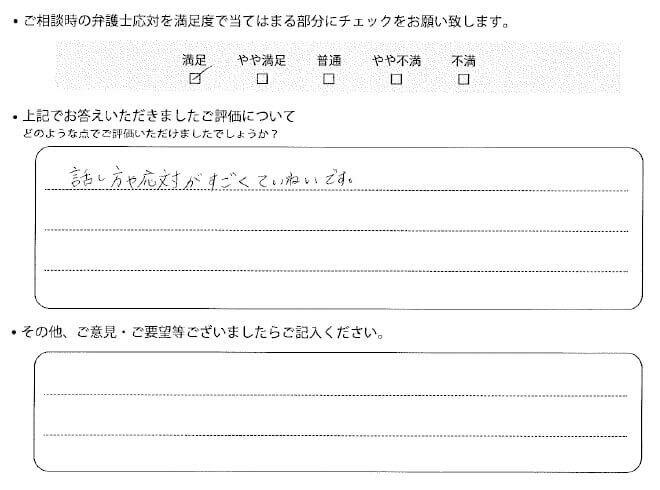 •ご相談時の弁護士応対を満足度で当てはまる部分にチェックをお願い致します。
満足 やや満足 普通 やや不満 不満
☑ ☐ ☐ ☐ ☐
•上記でお答えいただきましたご評価について
どのような点でご評価いただけましたでしょうか？
話し方や応対がすごくていねいです。
•その他、ご意見・ご要望等ございましたらご記入ください。